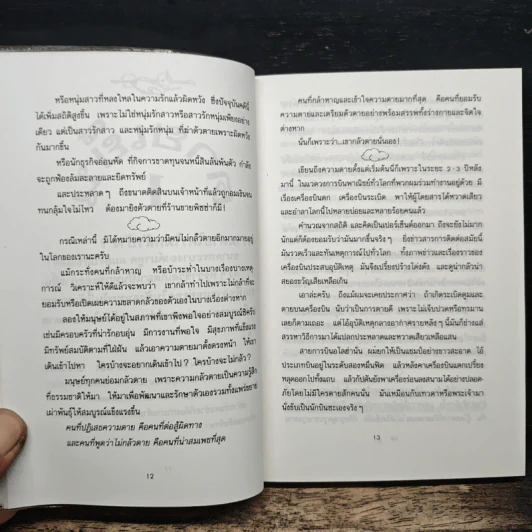 หรือหนุ่มสาวที่หลงใหลในความรักแล้วผิดหวัง ซึ่งปัจจุบันคดีนี้
ได้เพิ่มสถิติสูงขึ้น เพราะไม่ใช่หนุ่มรักสาวหรือสาวรักหนุ่มเพียงอย่าง
เดียว แต่เป็นสาวรักสาว และหนุ่มรักหนุ่ม ที่ฆ่าตัวตายเพราะผิดหวัง
กันมากขึ้น
หรือนักธุรกิจอ่อนหัด ที่กิจการขาดทุนจนหนี้สินล้นพ้นตัว กำลัง
จะถูกฟ้องล้มละลายและยึดทรัพย์
และประหลาด ๆ ถึงขนาดติดสินบนเจ้าหน้าที่แล้วถูกอมเงินจน
ทนกลุ้มใจไม่ไหว ต้องมายิงตัวตายที่ร้านขายพิซซ่าก็มี!
กรณีเหล่านี้ มิได้หมายความว่ามีคนไม่กลัวตายอีกมากมายอยู่
ในโลกของเรานะครับ
แม้กระทั่งคนที่กล้าหาญ หรือบ้าระห่ำในบางเรื่องบางเหตุ
การณ์ วิเคราะห์ให้ดีแล้วจะพบว่า เขากล้าทำไปเพราะไม่กล้าที่จะ
ยอมรับหรือเปิดเผยความขลาดกลัวของตัวเองในบางเรื่องต่างหาก
ลองให้มนุษย์ได้อยู่ในสภาพที่เขาพึงพอใจอย่างสมบูรณ์ซิครับ
เช่นมีครอบครัวที่น่ารักอบอุ่น มีการงานที่พอใจ มีสุขภาพที่แข็งแรง
มีทรัพย์สมบัติตามที่ใฝ่ฝัน แล้วเอาความตายมาตั้งตรงหน้า ให้เขา
เดินเข้าไปหา ใครบ้างจะอยากเดินเข้าไป ? ใครบ้างจะไม่กลัว ?
มนุษย์ทุกคนย่อมกลัวตาย เพราะความกลัวตายเป็นความรู้สึก
ที่ธรรมชาติให้มา ให้มาเพื่อพัฒนาและรักษาตัวเองรวมทั้งแพร่ขยาย
เผ่าพันธุ์ให้สมบูรณ์แข็งแรงขึ้น
คนที่ปฏิเสธความตาย คือคนที่ต่อสู้ผิดทาง
และคนที่พูดว่าไม่กลัวตาย คือคนที่น่าสมเพชที่สุด
12
คนที่กล้าหาญและเข้าใจความตายมากที่สุด คือคนที่ยอมรับ
ความตายและเตรียมตัวตายอย่างพร้อมสรรพทั้งร่างกายและจิตใจ
ต่างหาก
นั่นก็เพราะว่า..เขากลัวตายนั่นเอง!
เขียนถึงความตายตั้งแต่เริ่มต้นนี่ก็เพราะในระยะ 2-3 ปีหลัง
มานี้ ในแวดวงการบินพาณิชย์ทั่วโลกที่พวกผมร่วมทำงานอยู่ด้วย มี
เรื่องเครื่องบินตก เครื่องบินระเบิด พาให้ผู้โดยสารได้หวาดเสียว
และอำลาโลกนี้ไปหลายบ่อยและหลายร้อยคนแล้ว
คำนวณจากสถิติ และคิดเป็นเปอร์เซ็นต์ออกมา ถึงจะยังไม่มาก
นักแต่ก็ต้องยอมรับว่ามันมากขึ้นจริง ๆ ยิ่งข่าวสารการติดต่อสมัยนี้
มันรวดเร็วและทันเหตุการณ์ไปทั่วโลก ทั้งภาพข่าวและเรื่องราวของ
เครื่องบินประสบอุบัติเหตุ มันจึงเปรี้ยงปร้างโด่งดัง และดูน่ากลัวน่า
สยองขวัญเสียเหลือเกิน
เอาล่ะครับ ถึงแม้ผมจะเคยประกาศว่า ถ้าเกิดระเบิดตูมและ
ตายบนเครื่องบิน นับว่าเป็นการตายดี เพราะไม่เจ็บปวดหรือทรมาน
เลยก็ตามเถอะ แต่ไอ้อุบัติเหตุกลางอากาศรายหลัง ๆ นี้มันก็ช่างแต่
สรรหาวิธีการมาได้แปลกประหลาดและหวาดเสียวเหลือแสน
สายการบินอโลฮ่านั้น ผมยกให้เป็นแชมป์อย่างขาวสะอาด ไอ้
ประเภทบินอยู่ในระดับสองหมื่นฟิต แล้วหลังคาเครื่องบินแตกเปรี้ยง
หลุดออกไปทั้งแถบ แล้วกัปตันยังพาเครื่องร่อนลงสนามได้อย่างปลอด
ภัยโดยไม่มีใครตายสักคนนั้น มันเหมือนกับเทวดาหรือพระเจ้ามา
นั่งขับเป็นนักบินซะเองจริง ๆ
13